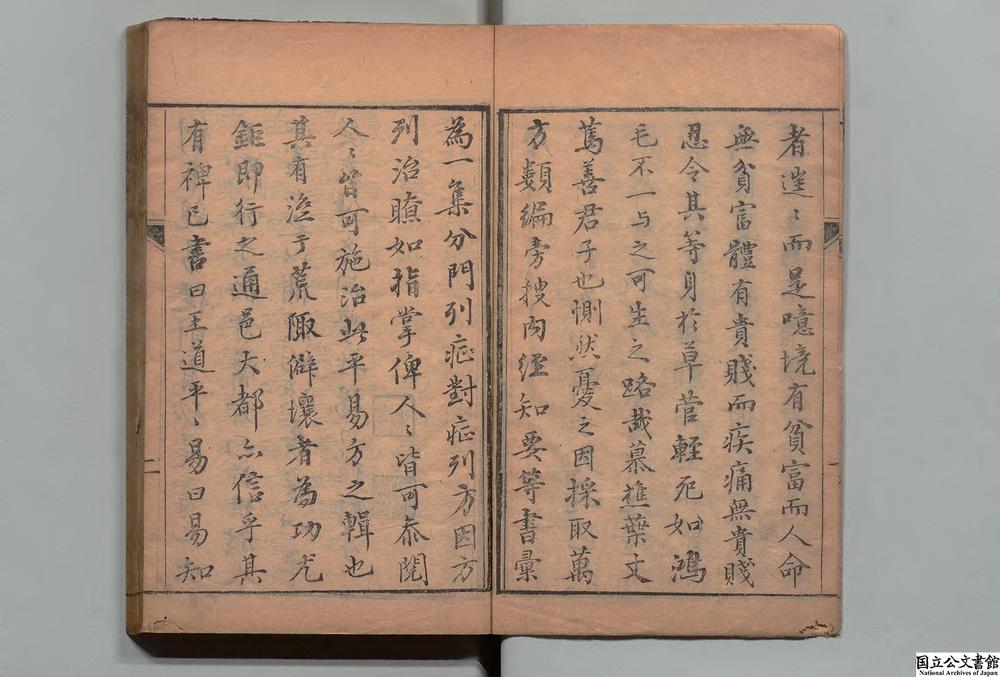 者遑〻而是噫境有貧富而人命
無貧富體有貴賤而疾痛無貴賤
忍令其等身於草菅輕死如鴻
毛不一与之可生之路哉慕樵葉丈
篤善君子也惻然憂之因採取萬
方類編旁搜內經知要等書彙
為一集分門列症對症列方因方
列治瞭如指掌俾人〻皆可泰閱
人〻皆可施治此平易方之輯也
其有濟于荒陬僻壤者為功尤
鉅即行之通邑大都亦信乎其
有裨已書曰王道平〻易曰易知
一
二
国立公文書館
National Archives of Japan